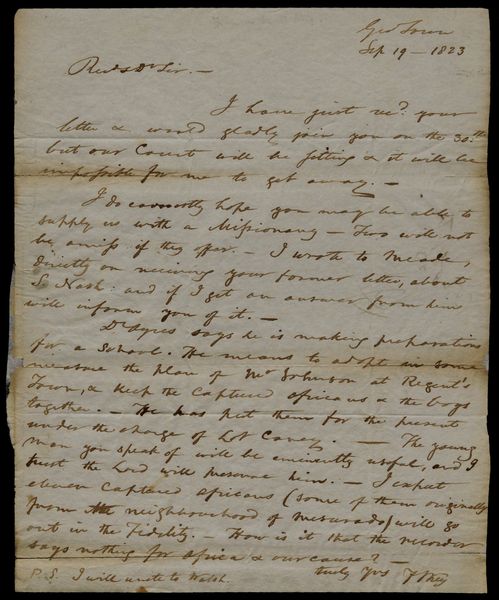 Geo Town
Sep 19 - 1823
Revd & Dr Sir. -
I have just recd. your
letter & would gladly join you on the 30.th
but our Court will be sitting & it will be
impossible for me to get away. -
I do earnestly hope you may be able to
supply us with a Missionary - Two will not
be amiss if they offer. - I wrote to Meade,
directly on receiving your former letter, about
S. Nash: and if I get an answer from him
will inform you of it. -
Dr Ayres says he is making preparations
for a School. He means to adopt in some
measure the plan of Mr Johnson at Regent's
Town, & keep the Captured africans & the boys
together. - He has put them for the present
under the charge of Lot Carey. - The young
man you speak of will be eminently useful, and I
trust the Lord will preserve him. - I expect
eleven captured africans (some of them originally
from the neighbourhood of Mesurado) will go
out in the Fidelity. - How is it that the recorder
says nothing for africa & our cause? -
truly Yrs F Key
P.S. I will write to Walsh.